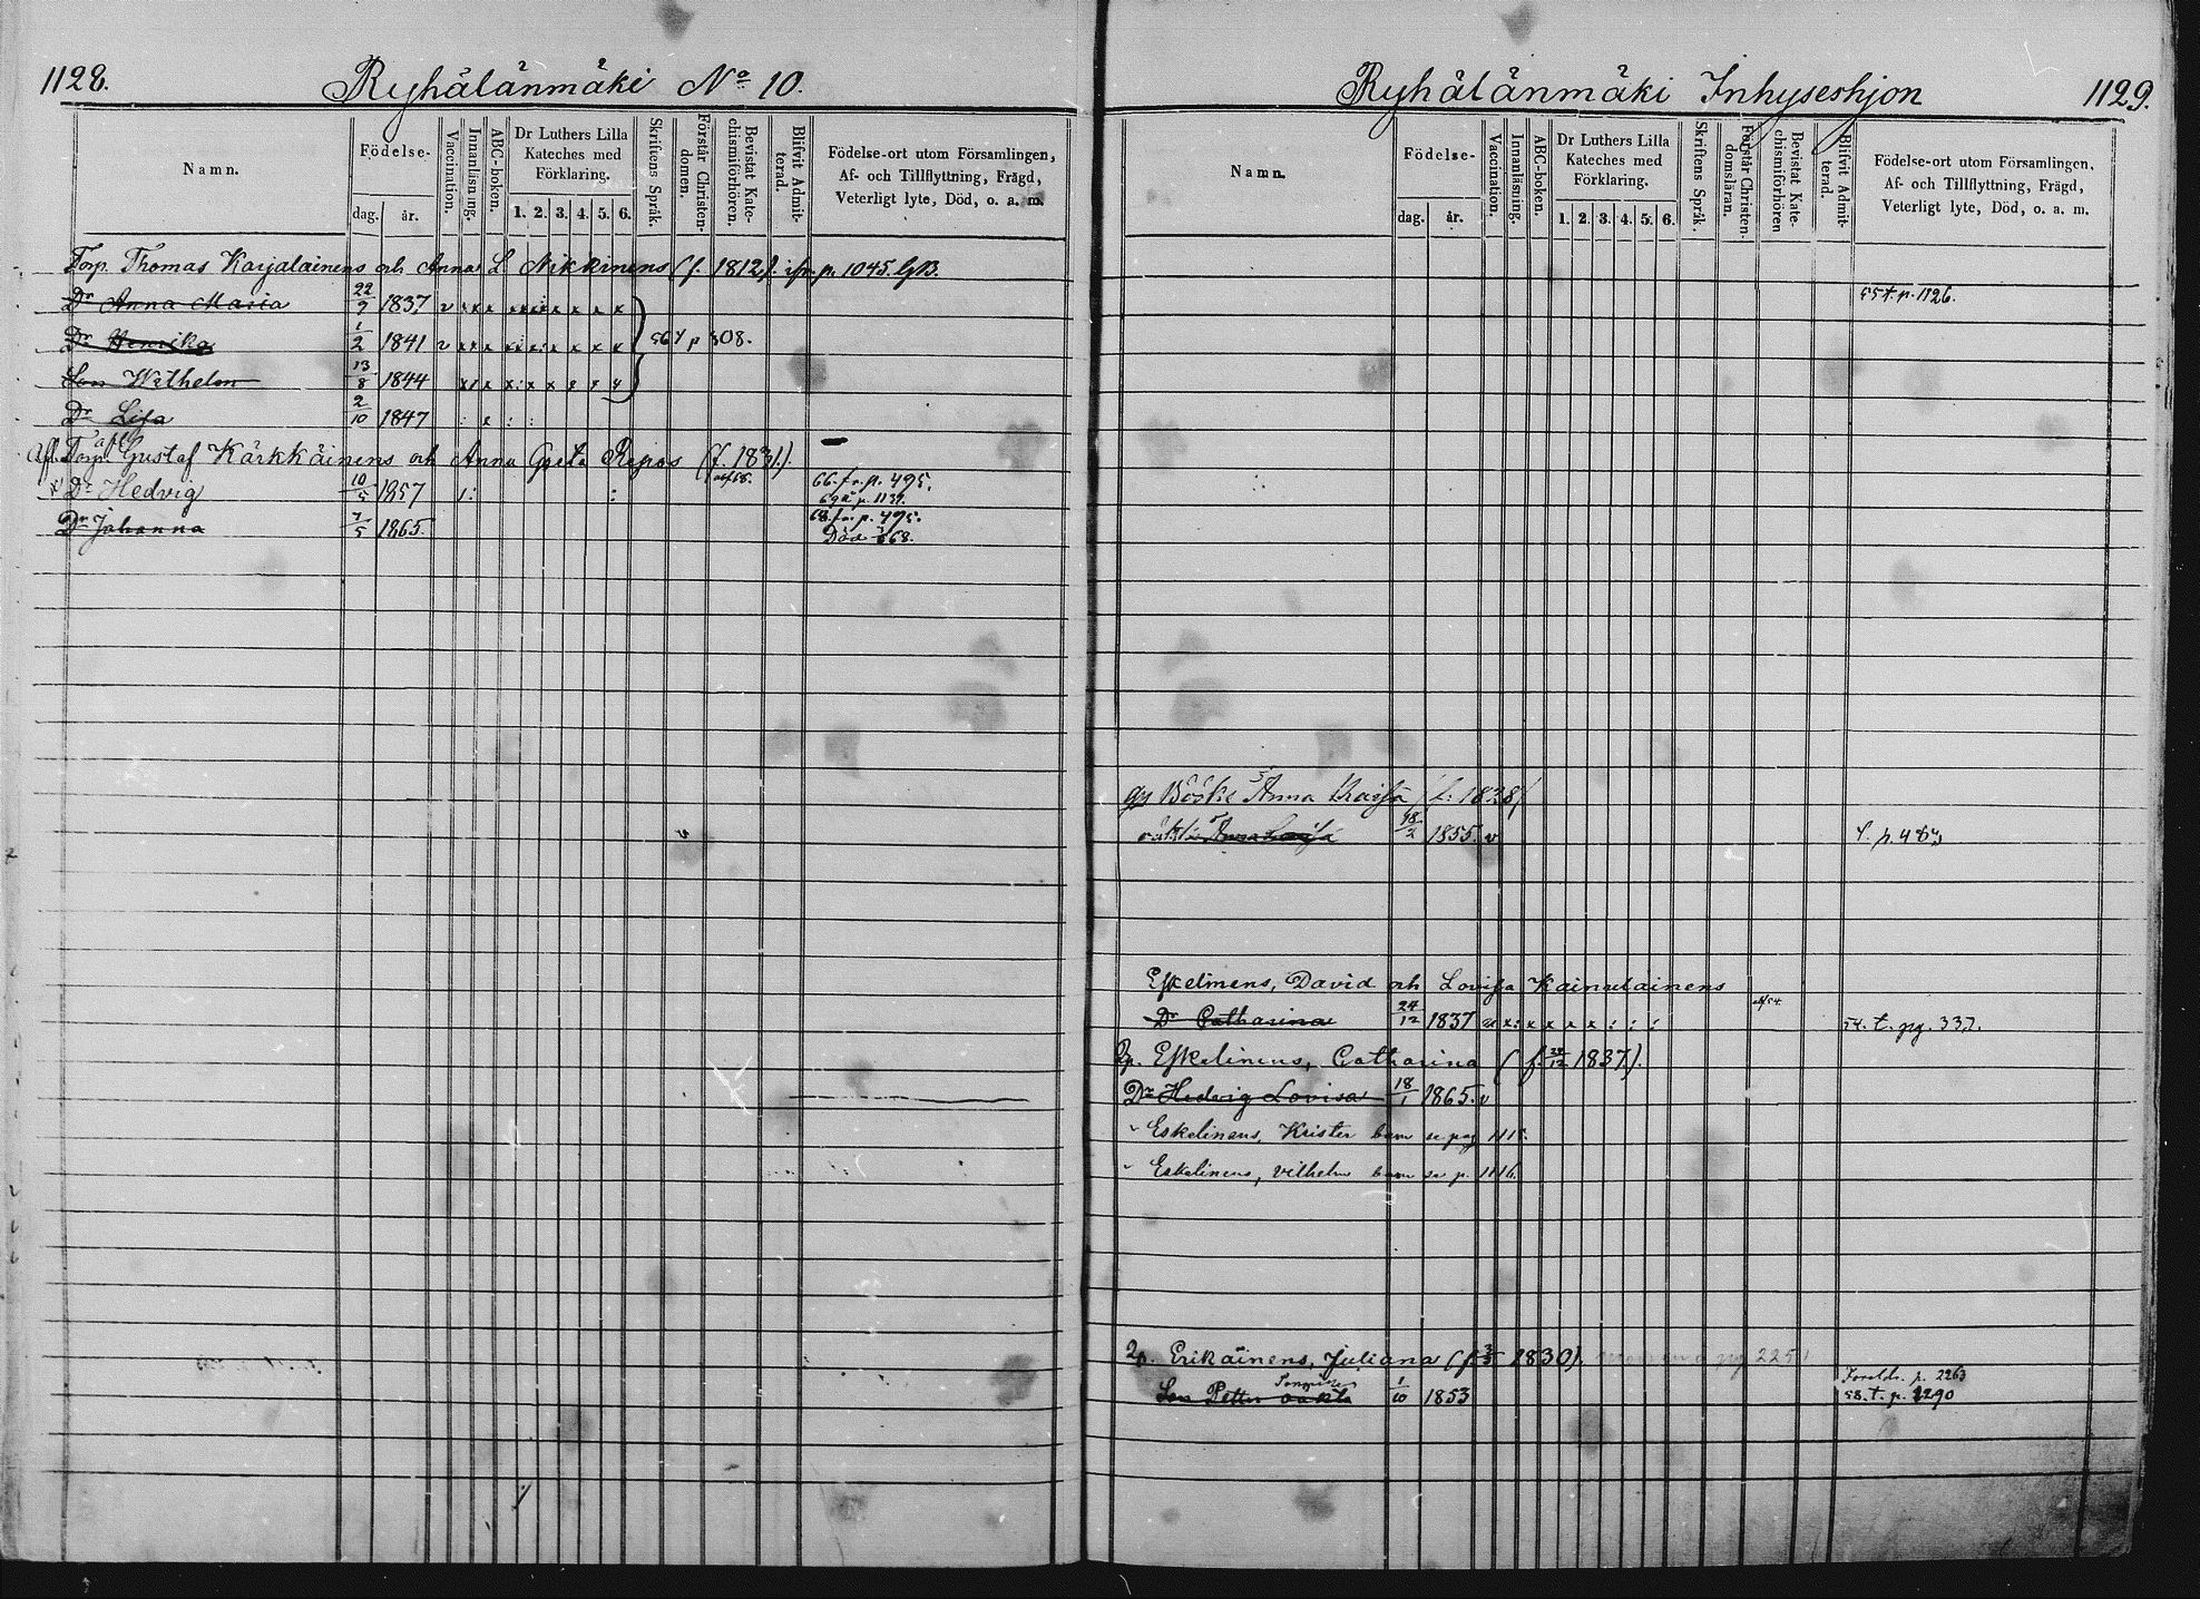 1128.
Ryhälänmäki No 10.
Namn.
Födelse-
dag. år.
Vaccination.
Innanläsning.
ABC-boken.
Dr Luthers Lilla Kateches med Förklaring.
1. 2. 3. 4. 5. 6.
Skriftens Språk.
Förstår Christendomen.
Bevistat Kate-chismiförhören.
Blifvit Admit-terad.
Födelse-ort utom Församlingen,
Af- och Tillflyttning, Frägd,
Veterligt lyte, Död, o. a. m.
Torp. Thomas Karjalainens och Anna L. Nikkinens (f. 1812). p. 1045.
Dr Anna Maria 22/9 1837 v
Dr Henrika 1/2 1841 v 56 p 808.
Son Wilhelm 13/8 1844
Dr Lisa 2/10 1847
Torp. Gustaf Kärkkäinens och Anna Greta Repos (f. 1831).
Dr Hedvig 10/5 1857 66. fr. p. 495.
69 p. 1139.
Dr Johanna 7/5 1865. 68. fr. p. 495.
Död 68.
Ryhälänmäki Inhyseshjon
1129.
Namn.
Födelse-
dag. år.
Vaccination.
Innanläsning.
ABC-boken.
Dr Luthers Lilla Kateches med Förklaring.
1. 2. 3. 4. 5. 6.
Skriftens Språk.
Förstår Christen-domsläran.
Bevistat Kate-chismiförhören
Blifvit Admit-terad.
Födelse-ort utom Församlingen,
Af- och Tillflyttning, Frägd,
Veterligt lyte, Död, o. a. m.
55 t. p. 1126.
Anna (f. 1828)
1855. v
Eskelinens, David och Lovisa Kainulainens
Dr Catharina 24/12 1837 54. t. pg. 337.
Eskelinens, Catharina (f. 24/12 1837).
Dr Hedvig Lovisa 18/1 1865. v
Eskelinens, Krister barn se pag 1115.
Eskelinens, Vilhelm barn se p. 1116.
Erikäinens, Juliana (f. 1830).
Son Petter 1/10 1853 Föräldr. p. 2263
58. t. p. 2290